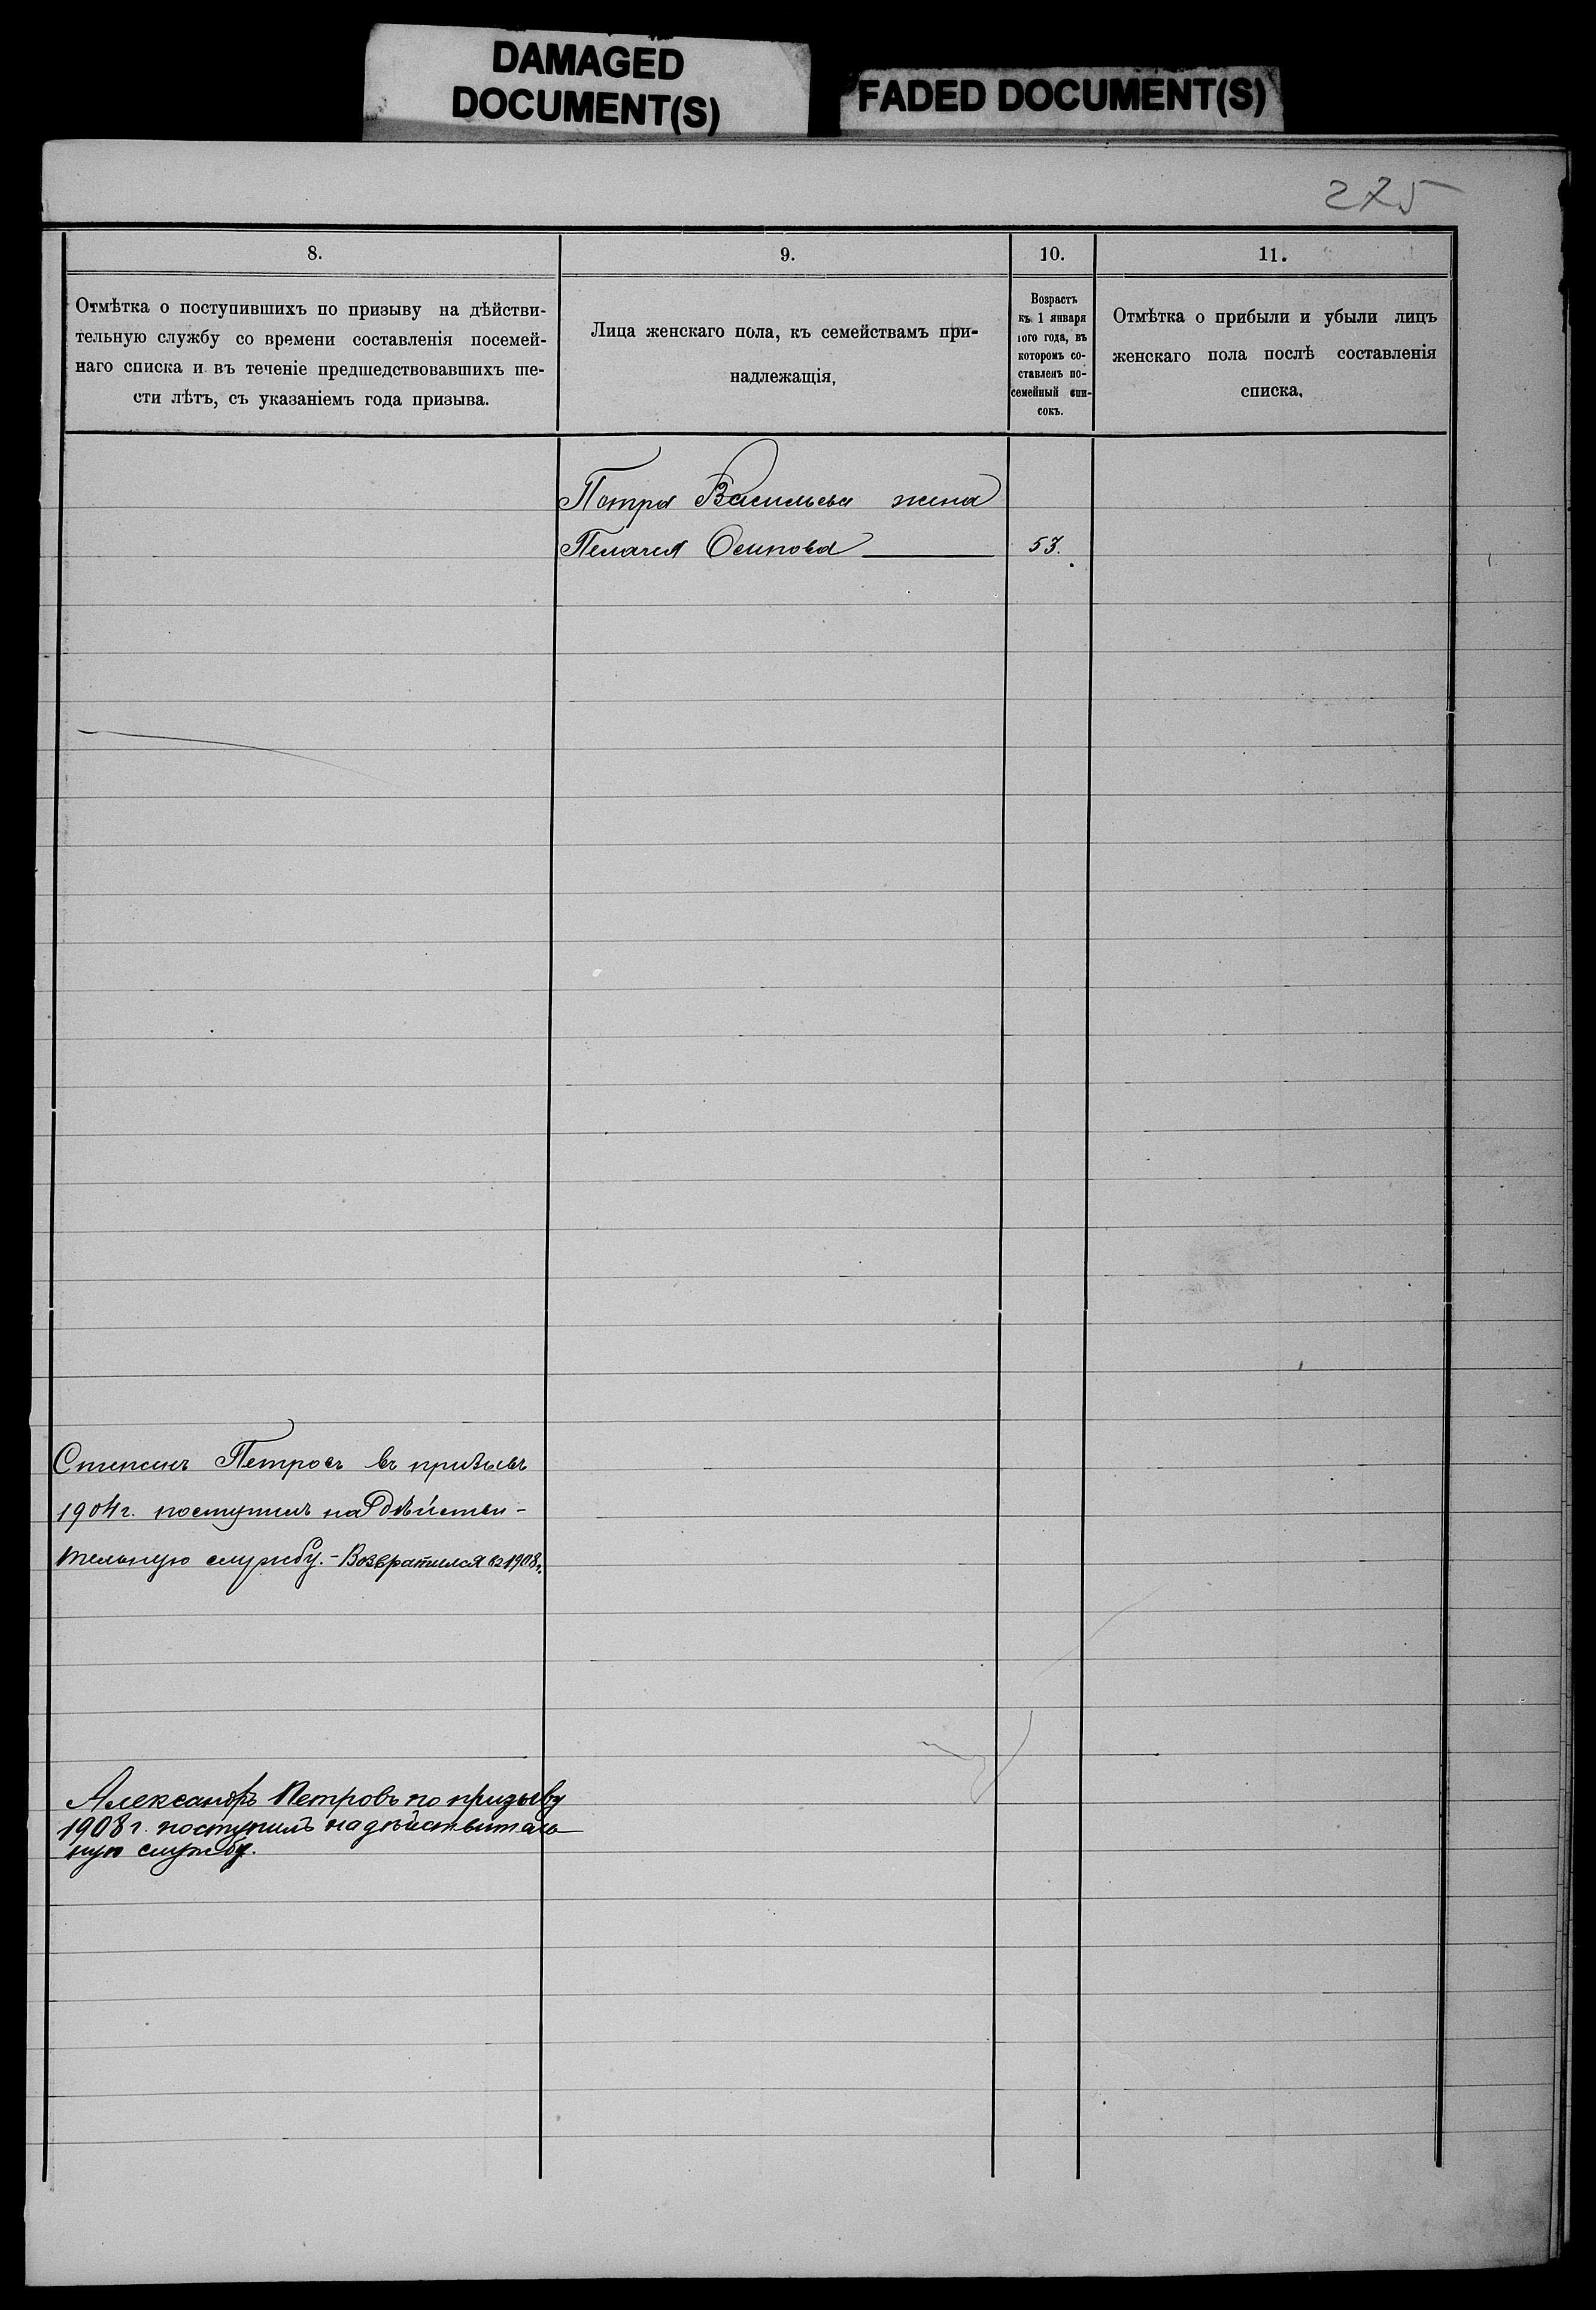 DAMAGED
DOCUMENT(S)
FADED DOCUMENT(S)
275
8.
Отмѣтка о поступившихъ по призыву на дѣйстви-
тельную службу со времени составленія посемей-
наго списка и въ теченіе предшедствовавшихъ ше-
сти лѣтъ, съ указаніемъ года призыва.
9.
Лица женскаго пола, къ семействамъ при-
надлежащія,
10.
Возрастъ
къ 1 января
того года, въ
которомъ со-
ставленъ по-
семейный спи-
сокъ.
11.
Отмѣтка о прибыли и убыли лицъ
женскаго пола послѣ составленія
списка.
Петра Васильева жена
Пелагея Осипова 53.
Степанъ Петровъ въ призывъ
1904 г. поступилъ на дѣйстви-
тельную службу. - Возвратился въ 1908 г.
Александръ Петровъ по призыву
1908 г. поступилъ на дѣйствитель
ную службу.